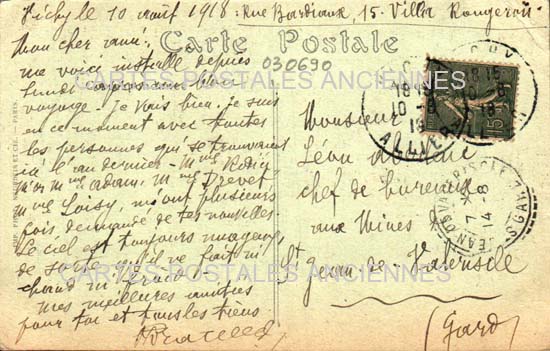 Vichy le 10 août 1918. Rue Bardiaux, 15. Villa Rougeron
Carte Postale
030690
Mon cher ami.
me voici installé depuis
lundi
voyage. Je vais bien. je suis
en ce moment avec toutes
les personnes qui se trouvaient
ici l'an dernier. Mme
Mr et Mme Adam, M Drevet
Mme Loisy, m'ont plusieurs
fois demandé de tes nouvelles.
Le ciel est toujours nuageux,
de sorte qu'il ne fait ni
chaud ni froid.
Mes meilleures amitiés
pour toi et tous les tiens
Monsieur
Léon
chef de bureau
aux Mines de
St Jean-de-Valeriscle
(Gard)
CARTES POSTALES ANCIENNES
CARTES POSTALES ANCIENNES
18 15
10 -8
18
ALLIER
15c
7
14 -8
GARD
PARIS